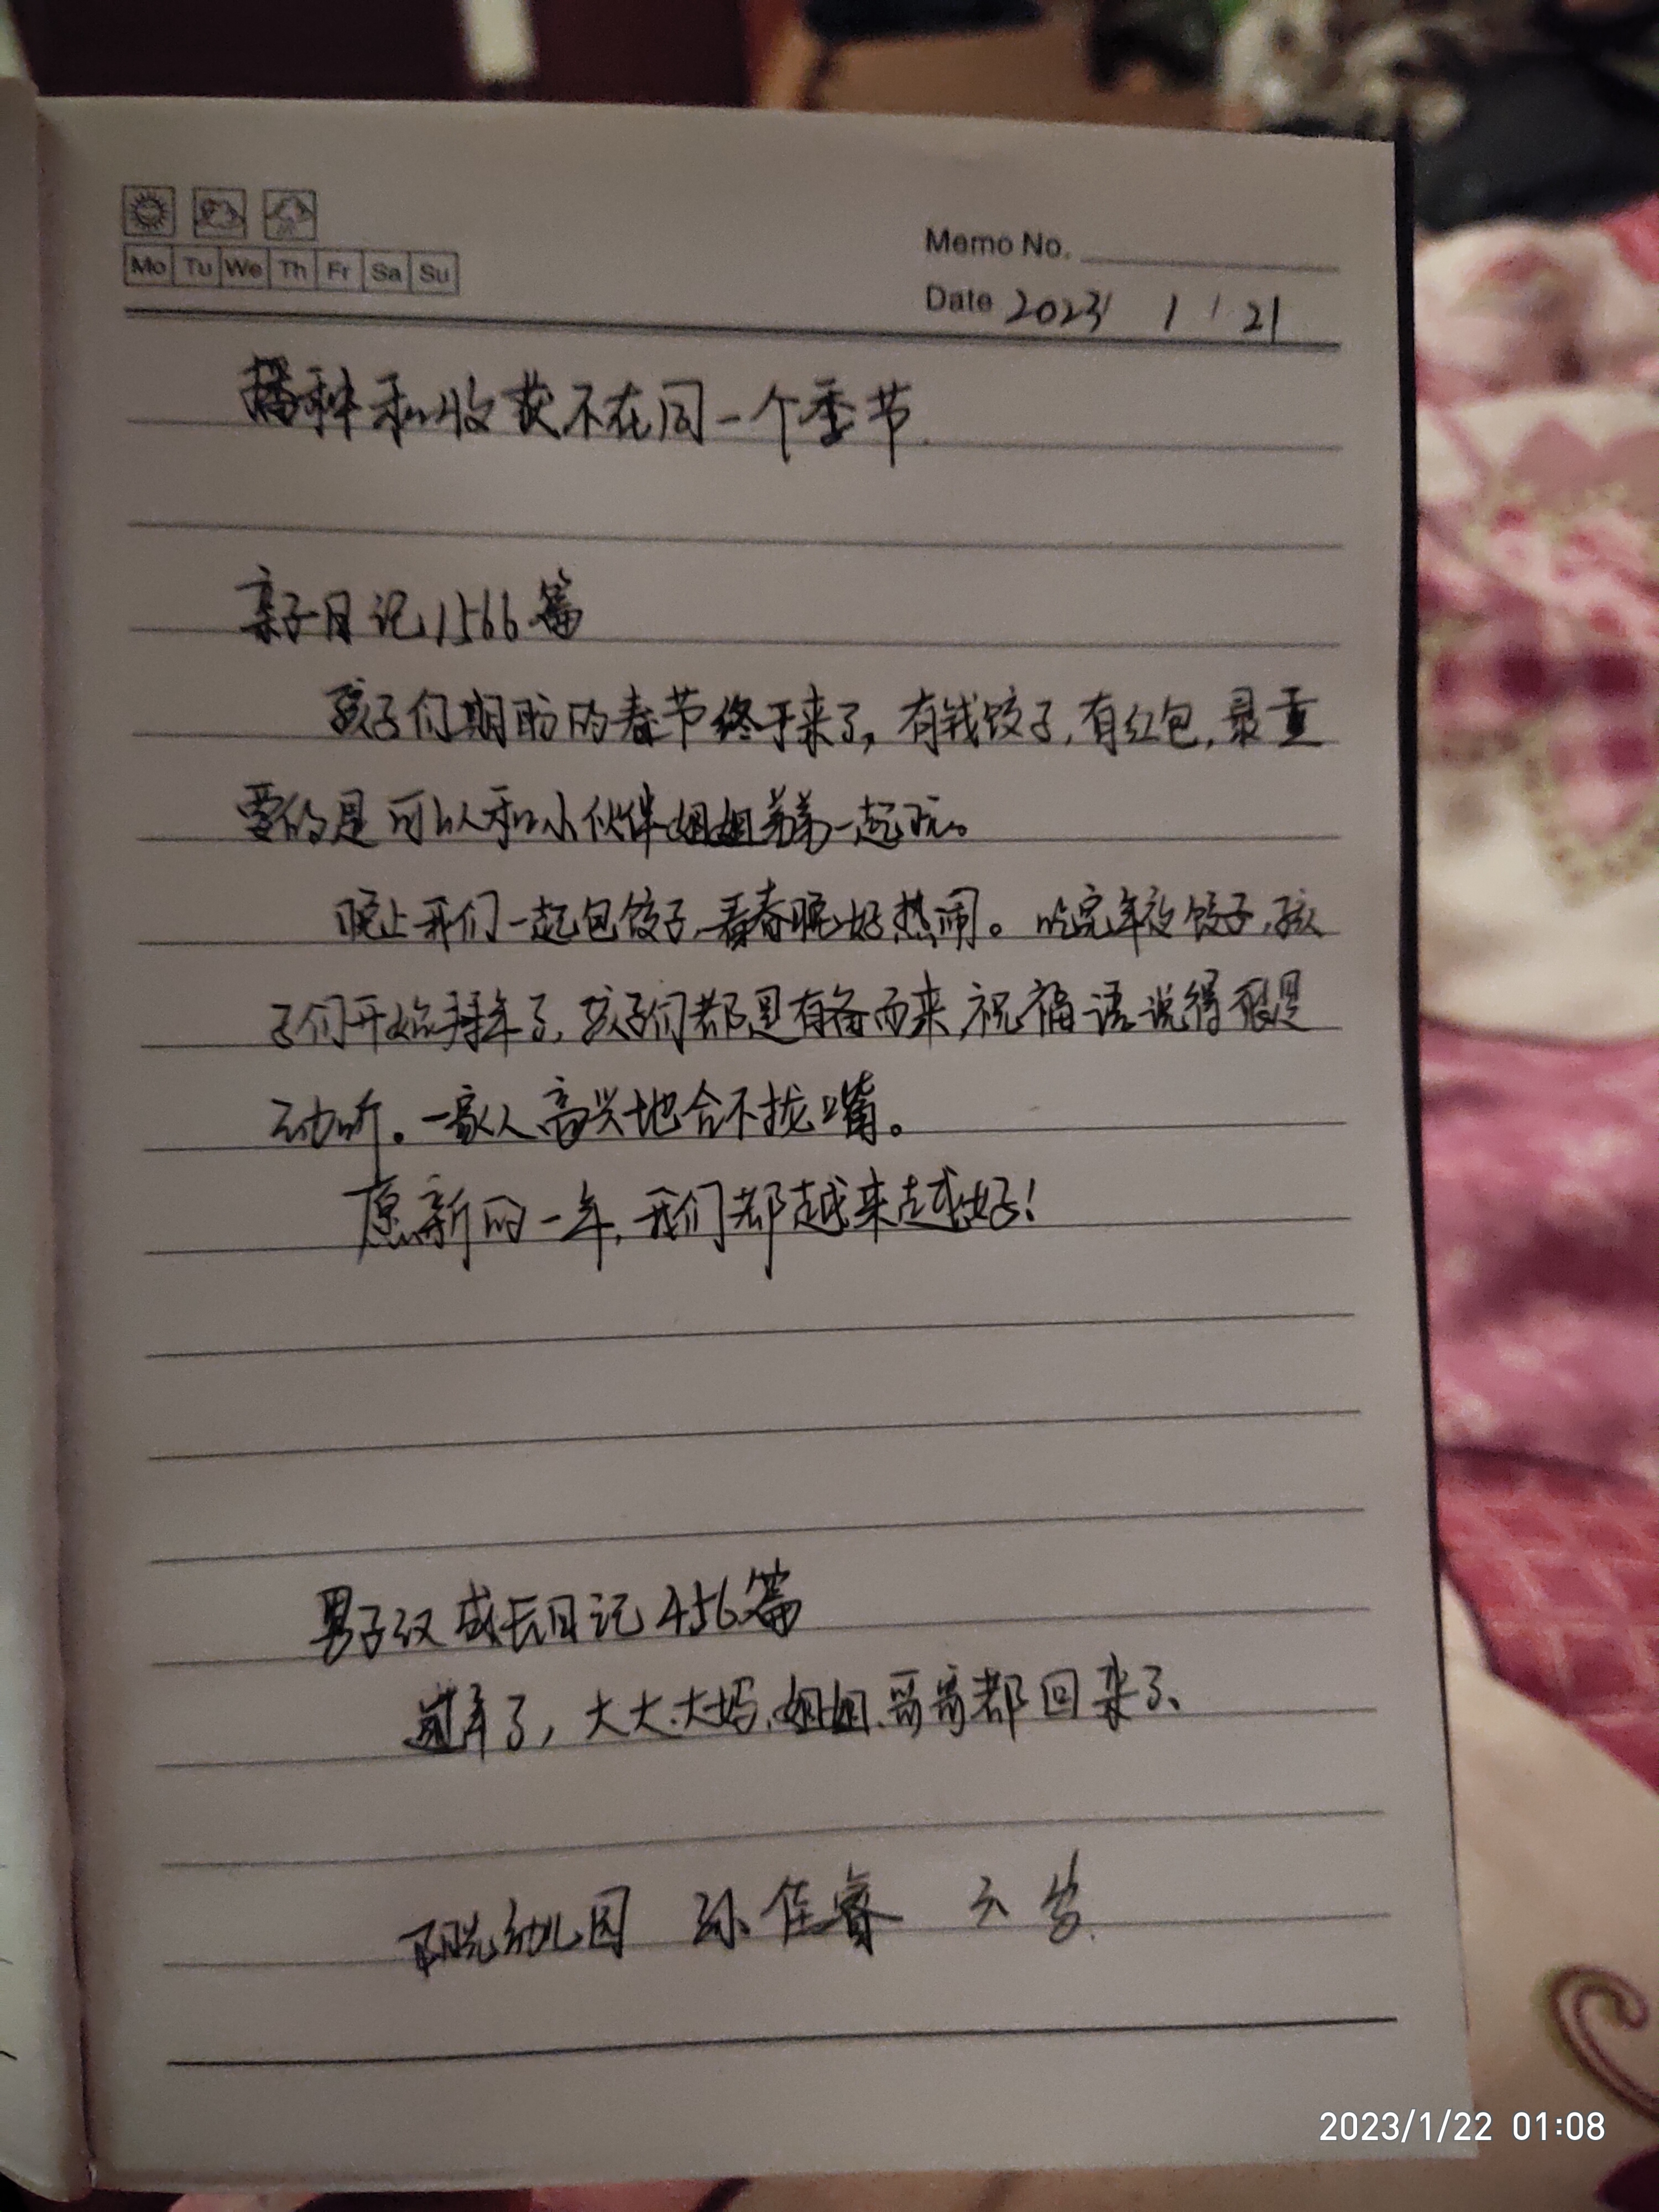 Mo Tu We Th Fr Sa Su
Memo No.
Date 2023 / 1 / 21
播种和收获不在同一个季节.
亲子日记1566篇
孩子们期盼的春节终于来了,有钱饺子,有红包,最重
要的是可以和小伙伴姐姐弟弟一起玩。
晚上我们一起包饺子、看春晚、好热闹。吃完年夜饺子,孩
子们开始拜年了,孩子们都是有备而来,祝福语说得很是
动听。一家人高兴地合不拢嘴。
愿新的一年,我们都越来越好!
男子汉成长日记456篇
过年了,大大、大妈、姐姐、哥哥都回来了、
幼儿园 孙佳睿 六岁.
2023/1/22 01:08